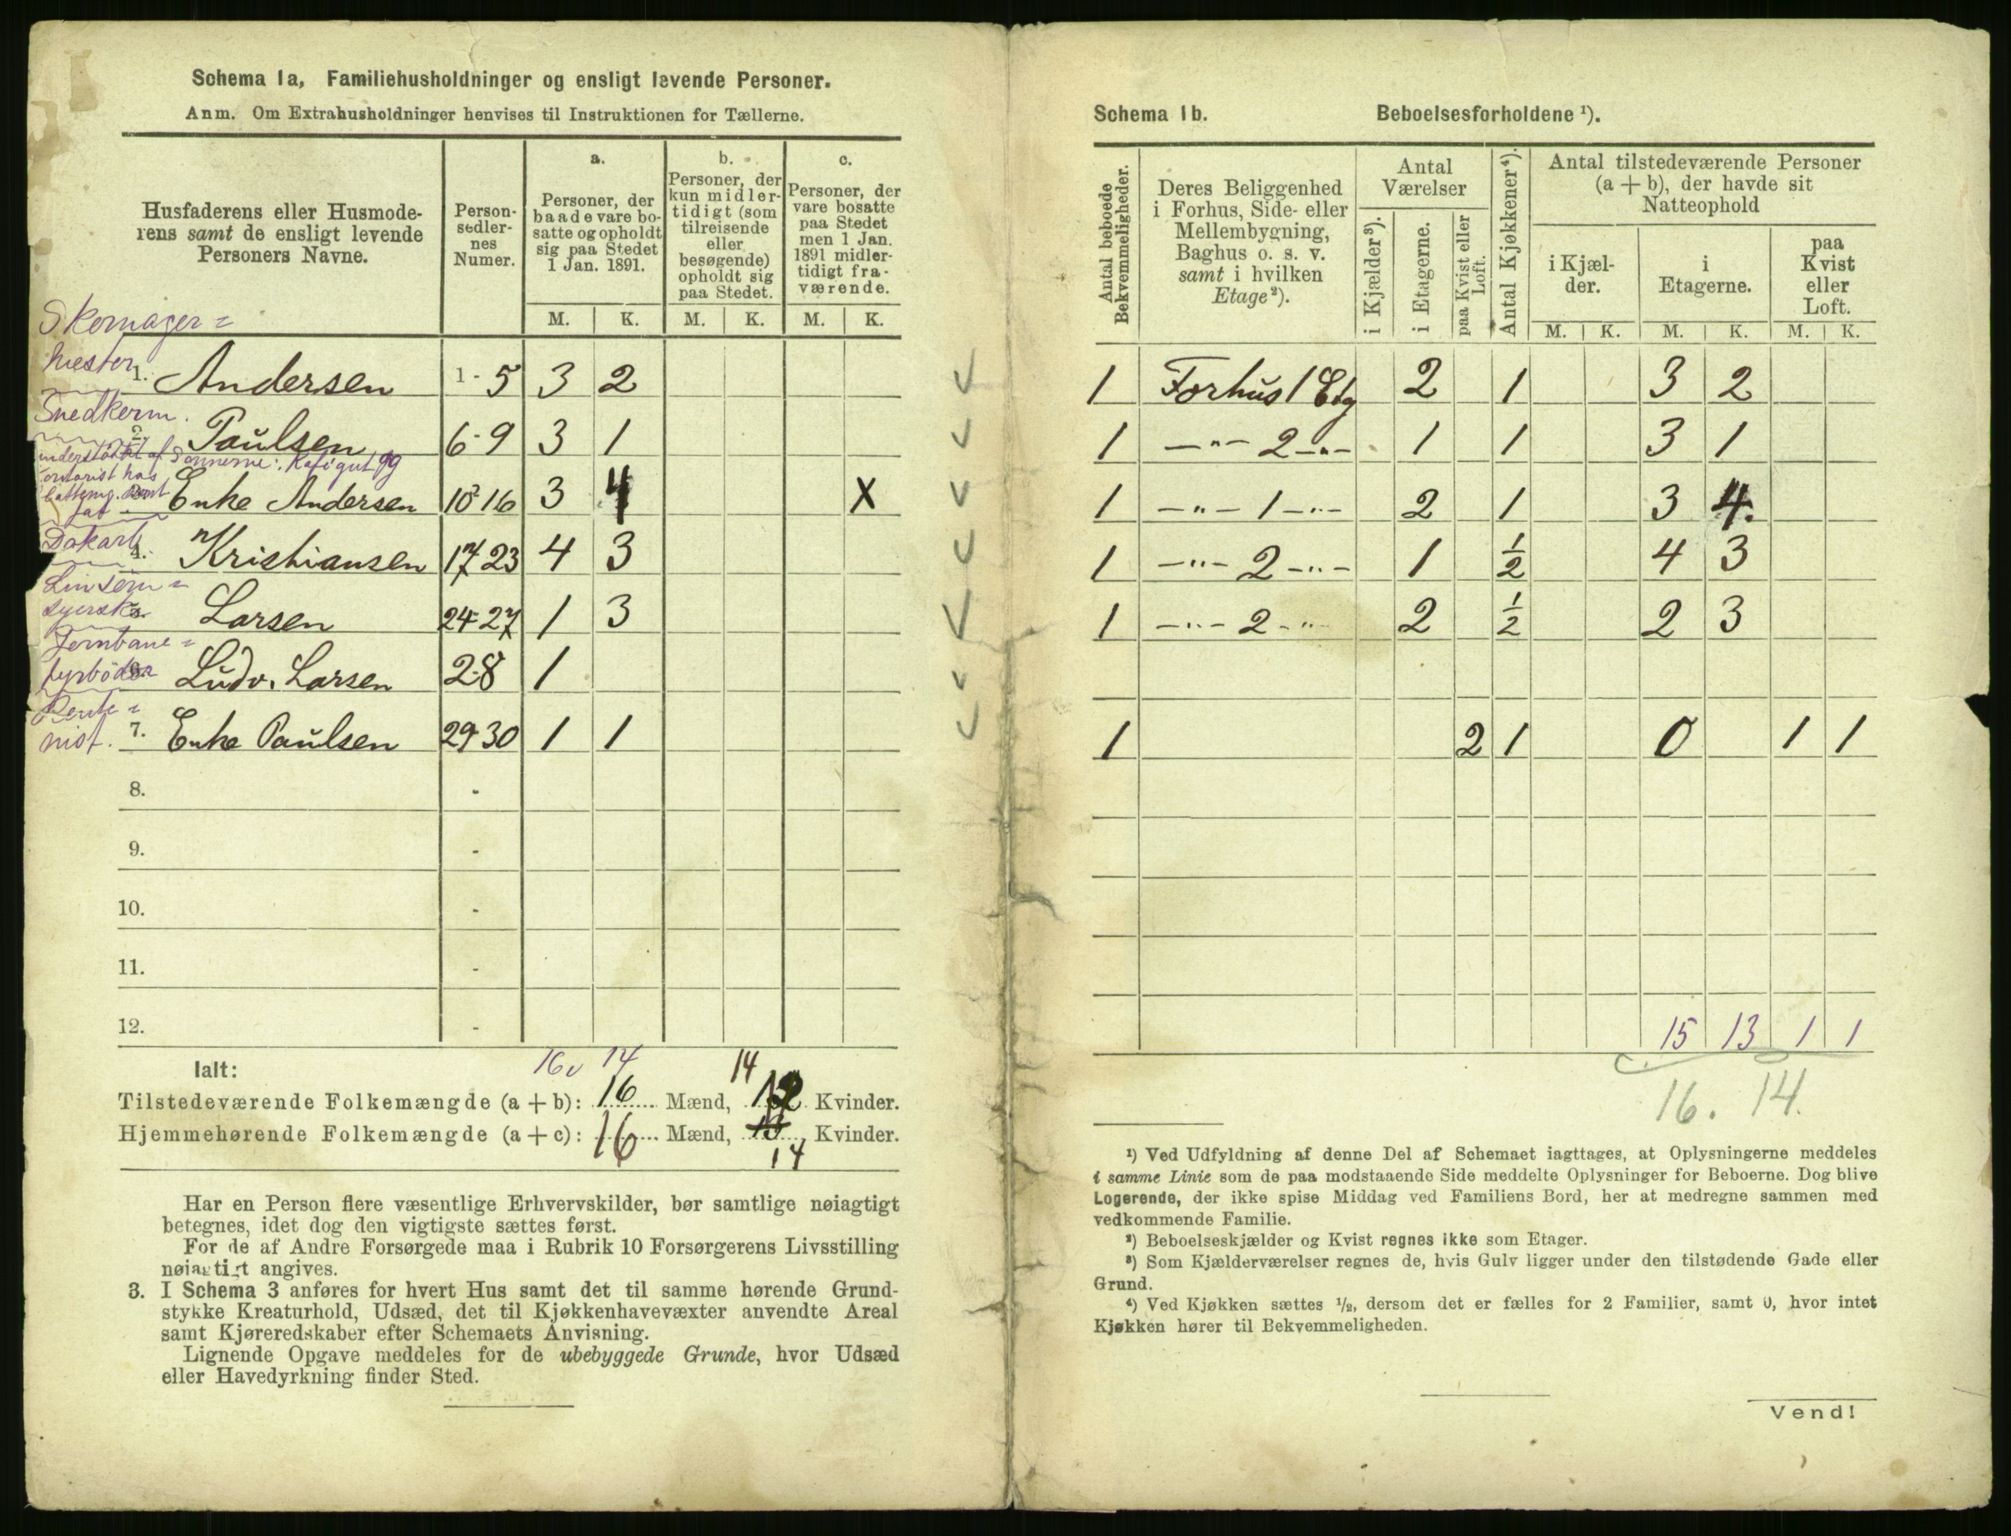 Schema 1a, Familiehusholdninger og ensligt levende Personer.
Anm. Om Extrahusholdninger henvises til Instruktionen for Tællerne.
Husfaderens eller Husmode-
rens samt de ensligt levende
Personers Navne.
Person-
sedler-
nes
Numer.
a.
Personer, der
baade vare bo-
satte og opholdt
sig paa Stedet
1 Jan. 1891.
b.
Personer, der
kun midler-
tidigt (som
tilreisende
eller
besøgende)
opholdt sig
paa Stedet.
c.
Personer, der
vare bosatte
paa Stedet
men 1 Jan.
1891 midler-
tidigt fra-
værende.
M. K. M. K. M. K.
Skomager=
mester
1. Andersen 1-5 3 2
Snedkerm.
2. Paulsen 6-9 3 1
understøttet af Sønnerne:
Enke Andersen 10-16 3 4 X
4. Kristiansen 17-23 4 3
Linsøm=
syerske
Larsen 24-27 1 3
Jernbane=
fyrbøder
Ludv. Larsen 28 1
Rente=
nist.
7. Enke Paulsen 29-30 1 1
8. -
9. -
10. -
11. -
12. -
16 14
Ialt:
14
Tilstedeværende Folkemængde (a + b): 16 Mænd, 12 Kvinder.
Hjemmehørende Folkemængde (a + c): 16 Mænd, 13 Kvinder.
14
Har en Person flere væsentlige Erhvervskilder, bør samtlige nøiagtigt
betegnes, idet dog den vigtigste sættes først.
For de af Andre Forsørgede maa i Rubrik 10 Forsørgerens Livsstilling
nøiagtigt angives.
3. I Schema 3 anføres for hvert Hus samt det til samme hørende Grund-
stykke Kreaturhold, Udsæd, det til Kjøkkenhavevæxter anvendte Areal
samt Kjøreredskaber efter Schemaets Anvisning.
Lignende Opgave meddeles for de ubebyggede Grunde, hvor Udsæd
eller Havedyrkning finder Sted.
Schema 1b. Beboelsesforholdene ¹).
Antal beboede
Bekvemmeligheder.
Deres Beliggenhed
i Forhus, Side- eller
Mellembygning,
Baghus o. s. v.
samt i hvilken
Etage²).
Antal
Værelser
i Kjælder³).
i Etagerne.
paa Kvist eller
Loft.
Antal Kjøkkener⁴).
Antal tilstedeværende Personer
(a + b), der havde sit
Natteophold
i Kjæl-
der.
i
Etagerne.
paa
Kvist
eller
Loft.
M. K. M. K. M. K.
1 Forhus 1 Etg 2 1 3 2
1 —"— 2 —"— 1 1 3 1
1 —"— 1 —"— 2 1 3 4.
1 —"— 2 —"— 1 ½ 4 3
1 —"— 2 —"— 2 ½ 2 3
1 2 1 0 1 1
15 13 1 1
16. 14.
¹) Ved Udfyldning af denne Del af Schemaet iagttages, at Oplysningerne meddeles
i samme Linie som de paa modstaaende Side meddelte Oplysninger for Beboerne. Dog blive
Logerende, der ikke spise Middag ved Familiens Bord, her at medregne sammen med
vedkommende Familie.
²) Beboelseskjælder og Kvist regnes ikke som Etager.
³) Som Kjælderværelser regnes de, hvis Gulv ligger under den tilstødende Gade eller
Grund.
⁴) Ved Kjøkken sættes ½, dersom det er fælles for 2 Familier, samt 0, hvor intet
Kjøkken hører til Bekvemmeligheden.
Vend!